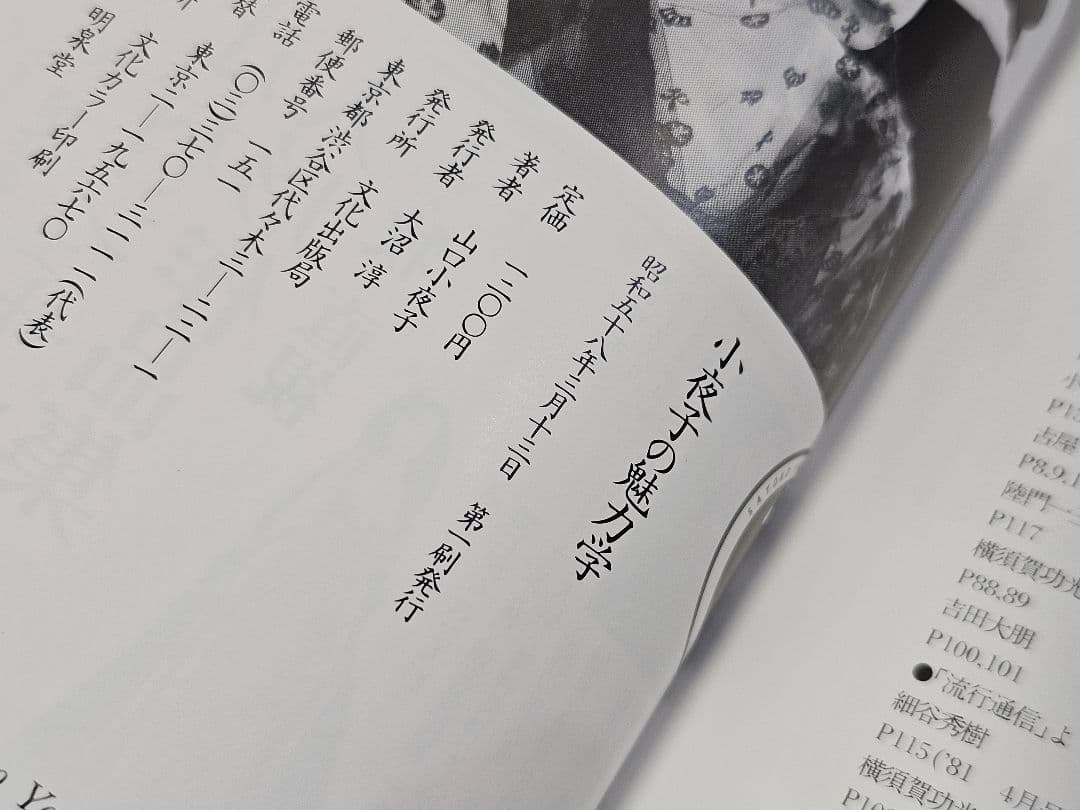 小夜子の魅力学
昭和五十八年三月十三日 第一刷発行
定価 一二〇〇円
著者 山口小夜子
発行者 大沼 淳
発行所 文化出版局
東京都渋谷区代々木三―二二―一
郵便番号 一五一
電話 (〇三)三七〇―三一一一(代表)
替 東京二―一九五六七〇
所 文化カラー印刷
明泉堂
小
P15
古屋
P8.9.1
P117
横須賀功光
P88,89
吉田大朋
P100,101
●「流行通信」よ
細谷秀樹
P115('81 4月
横須賀功光